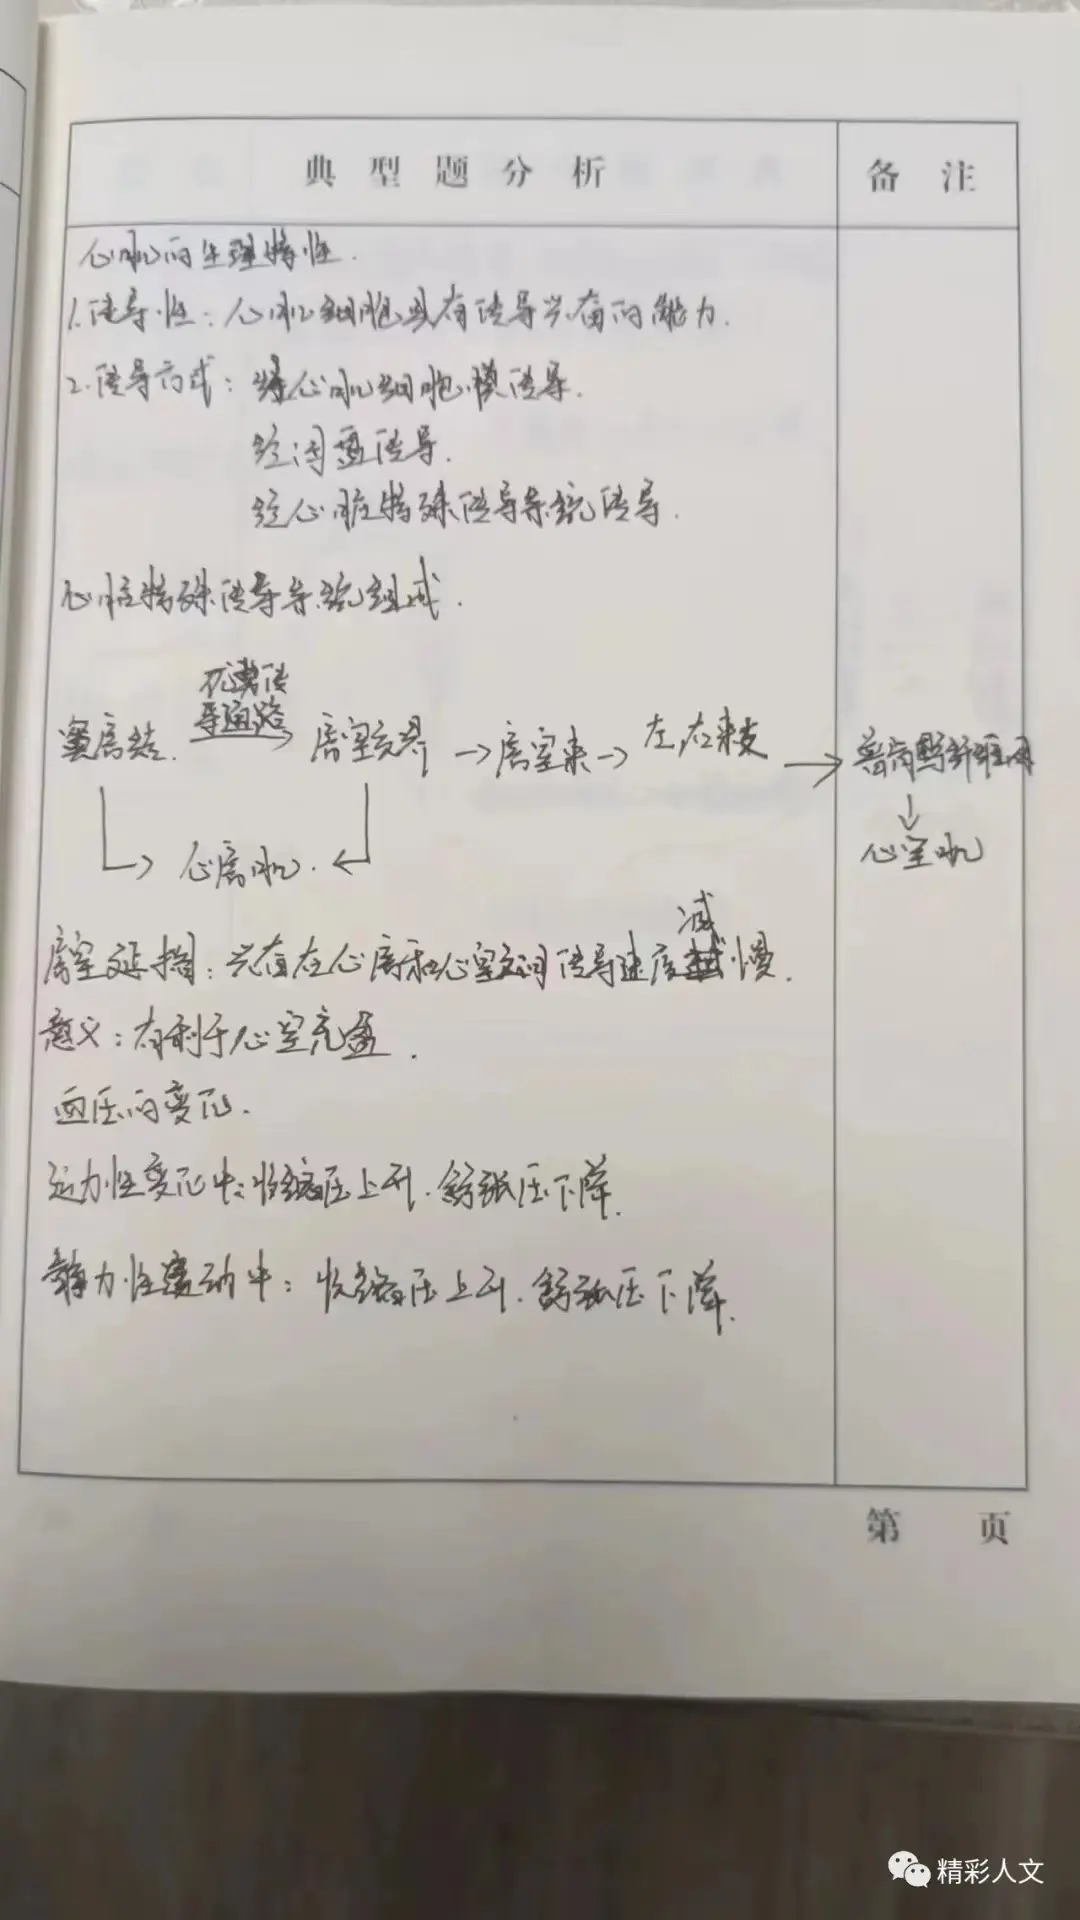 典型题分析 备注
心肌的生理特性.
1.传导性：心肌细胞具有传导兴奋的能力.
2.传导方式：缘心肌细胞膜传导.
经闰盘传导.
经心脏特殊传导系统传导.
心脏特殊传导系统组成.
优势传
导通路
窦房结. → 房室交界 → 房室束 → 左、右束支 → 普肯野纤维网
↓
心房肌. 心室肌
减
房室延搁：兴奋在心房和心室之间传导速度慢.
意义：有利于心室充盈.
血压的变化.
动力性变化中：收缩压上升.舒张压下降.
静力性运动中：收缩压上升.舒张压下降.
第 页
精彩人文